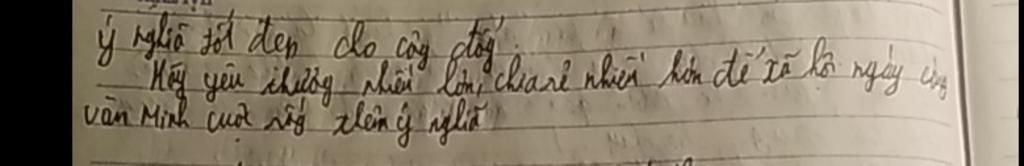 ý nghĩa tốt đẹp cho cộng đồng.
Hãy yêu thương nhiều hơn, chia sẻ nhiều hơn để xã hội ngày càng
văn minh cuộc sống thêm ý nghĩa